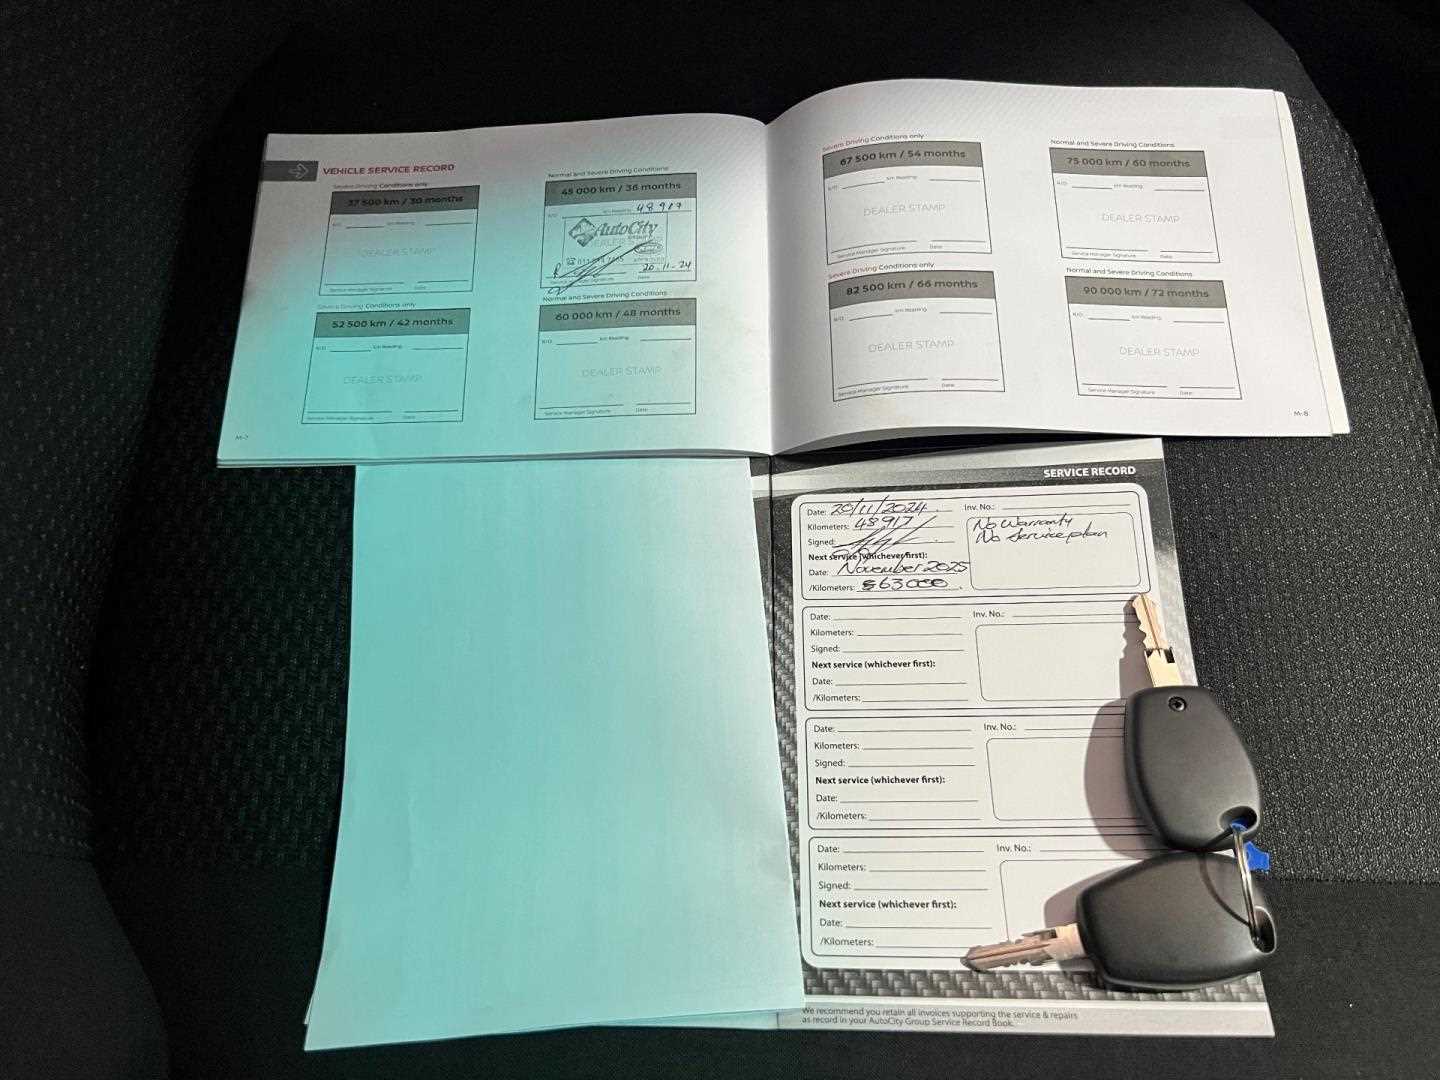 VEHICLE SERVICE RECORD
Severe Driving Conditions only
37 500 km / 30 months
R/O km Reading
DEALER STAMP
Service Manager Signature Date
Normal and Severe Driving Conditions
45 000 km / 36 months
R/O km Reading 48917
AutoCity
20-11-24
Service Manager Signature Date
Severe Driving Conditions only
52 500 km / 42 months
R/O km Reading
DEALER STAMP
Service Manager Signature Date
Normal and Severe Driving Conditions
60 000 km / 48 months
R/O km Reading
DEALER STAMP
Service Manager Signature Date
M-7
Severe Driving Conditions only
67 500 km / 54 months
R/O km Reading
DEALER STAMP
Service Manager Signature Date
Normal and Severe Driving Conditions
75 000 km / 60 months
R/O km Reading
DEALER STAMP
Service Manager Signature Date
Severe Driving Conditions only
82 500 km / 66 months
R/O km Reading
DEALER STAMP
Service Manager Signature Date
Normal and Severe Driving Conditions
90 000 km / 72 months
R/O km Reading
DEALER STAMP
Service Manager Signature Date
M-8
SERVICE RECORD
Date: 20/11/2024 Inv. No.:
Kilometers: 48917 No Warranty
Signed: No Service plan
Next service (whichever first):
Date: November 2025
/Kilometers: 63000
Date: Inv. No.:
Kilometers:
Signed:
Next service (whichever first):
Date:
/Kilometers:
Date: Inv. No.:
Kilometers:
Signed:
Next service (whichever first):
Date:
/Kilometers:
Date: Inv. No.:
Kilometers:
Signed:
Next service (whichever first):
Date:
/Kilometers:
We recommend you retain all invoices supporting the service & repairs
as record in your AutoCity Group Service Record Book.